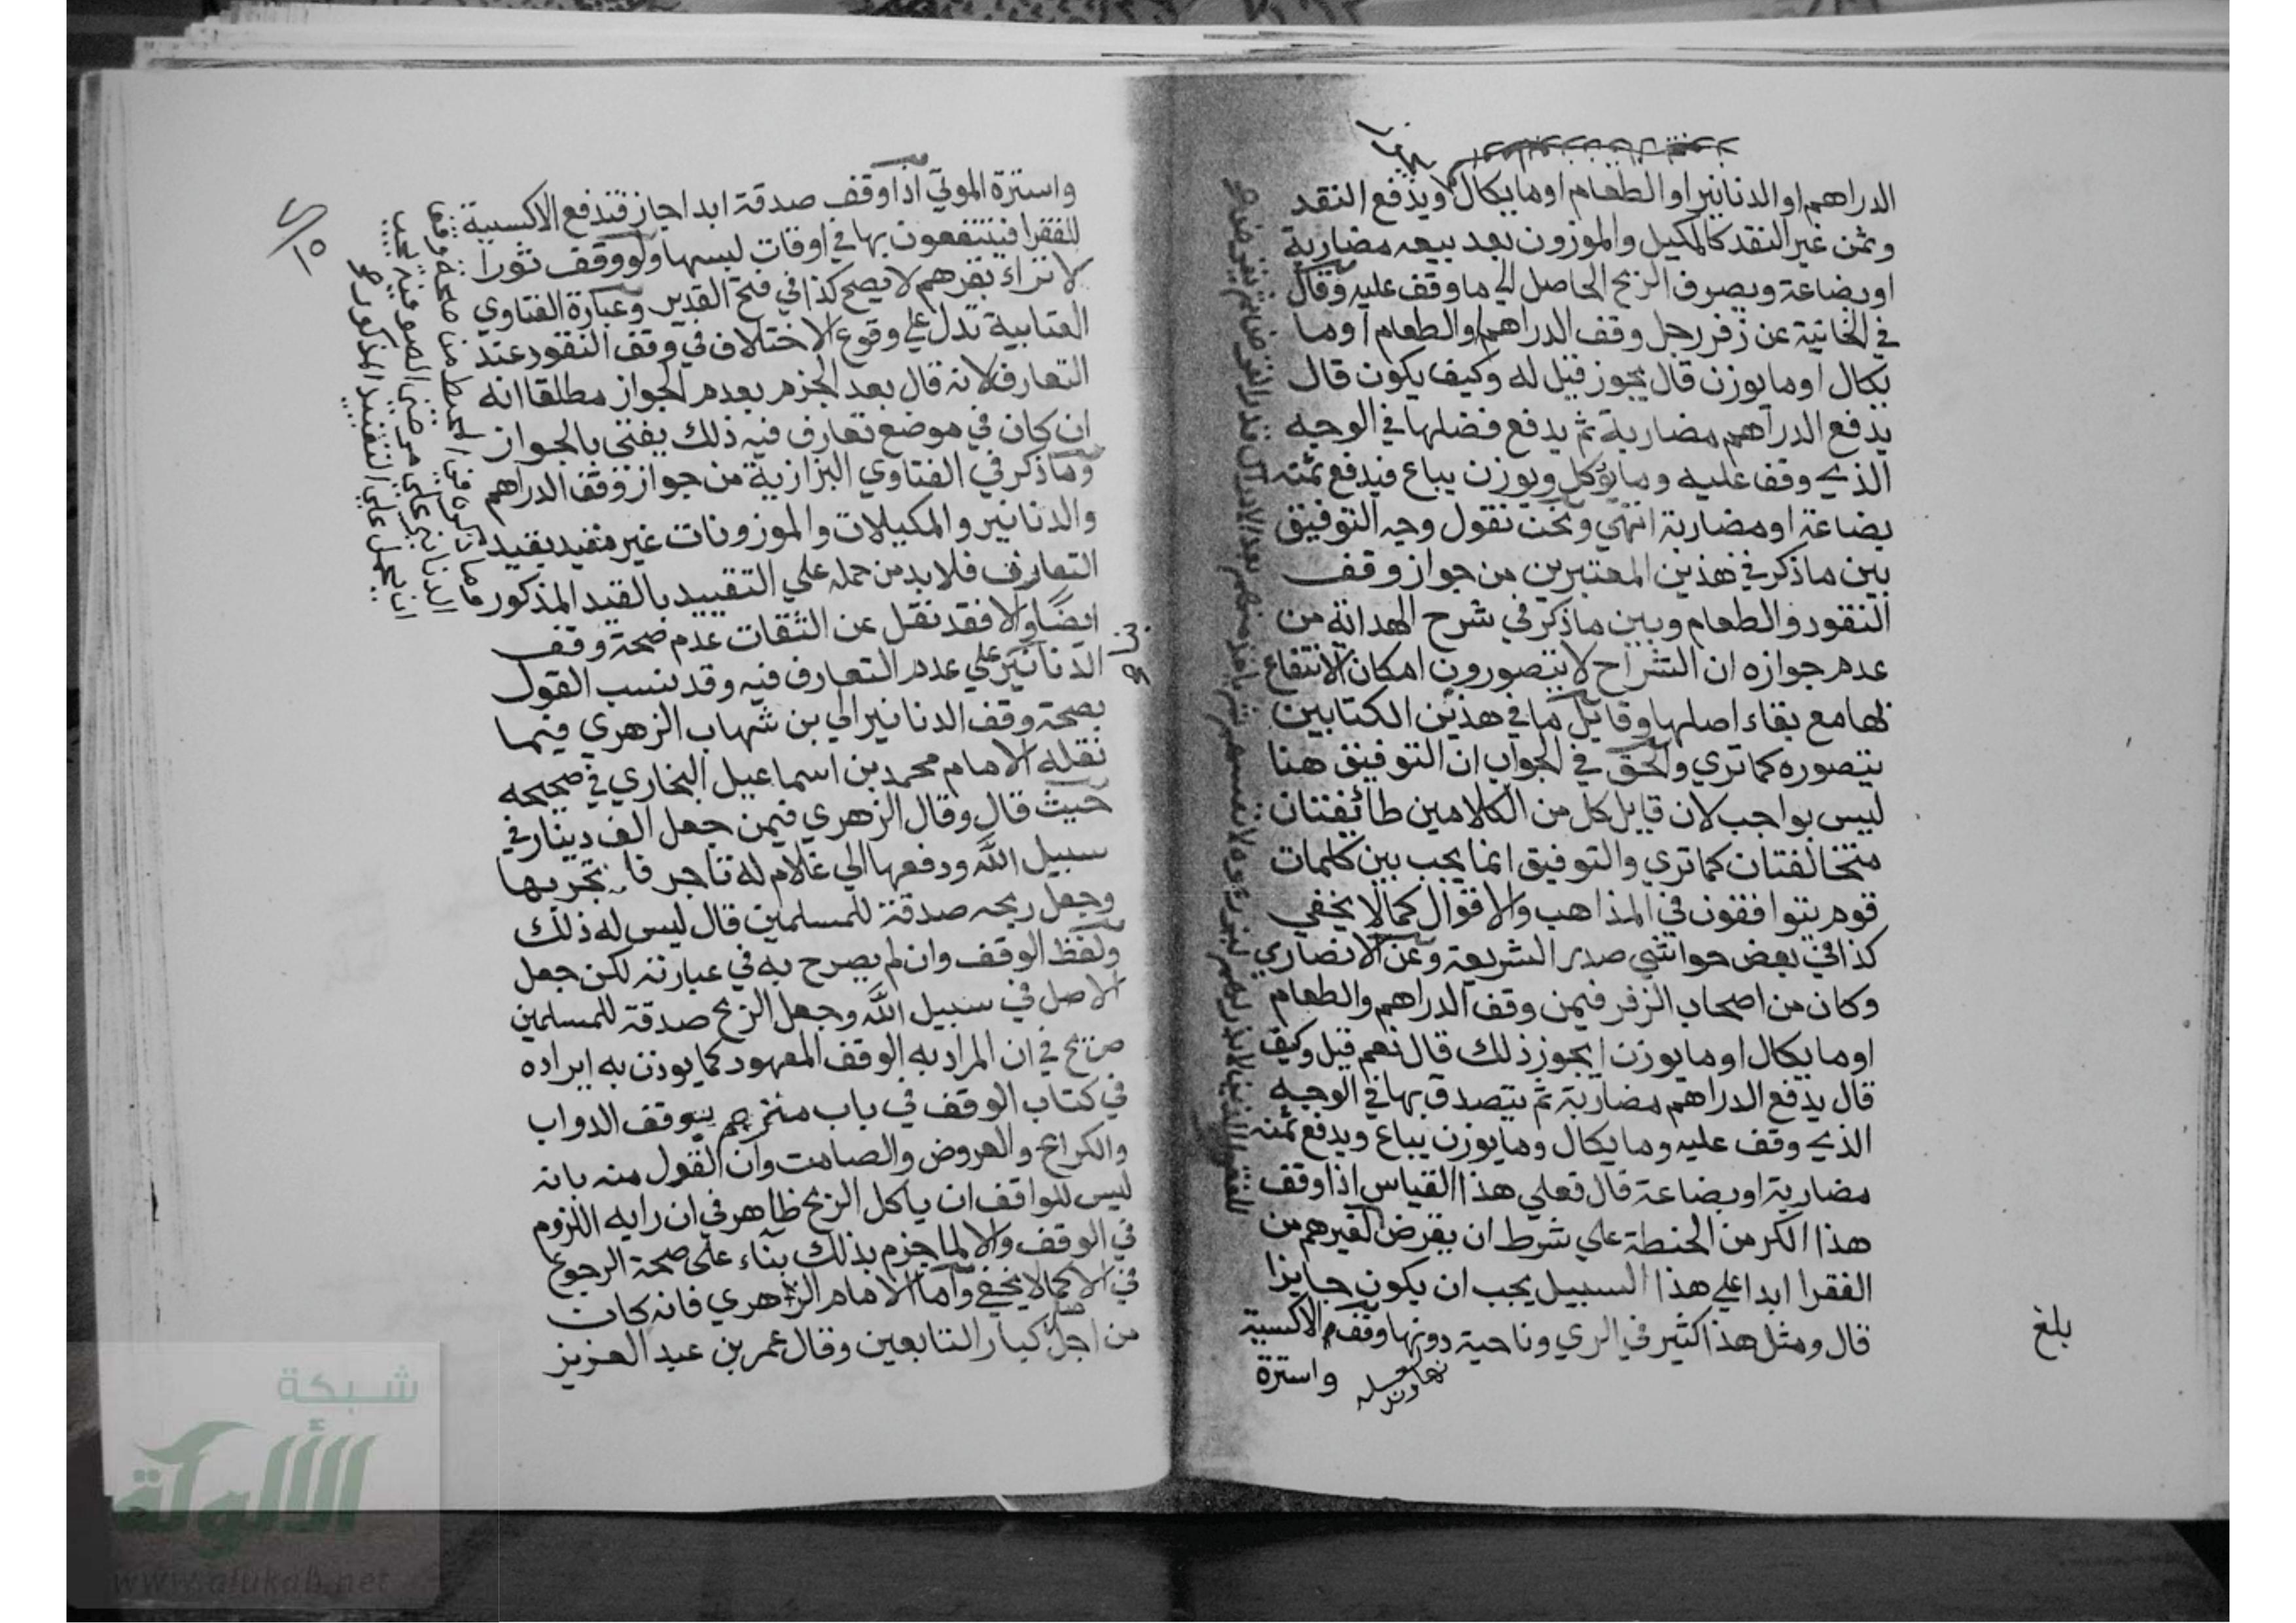 الدراهم او الدنانير او الطعام او ما يكال ويدفع النقد
وثمن غير النقد كالمكيل والموزون بعد بيعه مضاربة
او بضاعة ويصرف الربح الحاصل الي ما وقف عليه وقال
في الخانية عن زفر رجل وقف الدراهم والطعام او ما
يكال او ما يوزن قال يجوز قيل له وكيف يكون قال
يدفع الدراهم مضاربة ثم يدفع فضلها في الوجه
الذي وقف عليه وما يوكل ويوزن يباع فيدفع ثمنه
بضاعة او مضاربة انتهي ونحن نقول وجه التوفيق
بين ما ذكر في هذين المعتبرين من جواز وقف
النقود والطعام وبين ما ذكر في شرح الهداية من
عدم جوازه ان الشراح لا يتصورون امكان الانتفاع
بها مع بقاء اصلها وقايل ما في هذين الكتابين
يتصوره كما تري والحق في الجواب ان التوفيق هنا
ليس بواجب لان قايل كل من الكلامين طائفتان
متخالفتان كما تري والتوفيق انما يجب بين كلمات
قوم يتوافقون في المذاهب والاقوال كما لا يخفي
كذا في بعض حواشي صدر الشريعة وعن الانصاري
وكان من اصحاب الزفر فيمن وقف الدراهم والطعام
او ما يكال او ما يوزن ايجوز ذلك قال نعم قيل وكيف
قال يدفع الدراهم مضاربة ثم يتصدق بها في الوجه
الذي وقف عليه وما يكال وما يوزن يباع ويدفع ثمنه
مضاربة او بضاعة قال فعلي هذا القياس اذا وقف
هذا الكر من الحنطة علي شرط ان يقرض لغيرهم من
الفقرا ابدا علي هذا السبيل يجب ان يكون جايزا
قال ومثل هذا كثير في الري وناحية دونها وقف الاكسية
واسترة
بلغ
واسترة الموتي اذا وقف صدقة ابدا جاز فتدفع الاكسية
للفقرا فينتفعون بها في اوقات لبسها ولو وقف ثورا
لانزاء بقرهم لا يصح كذا في فتح القدير وعبارة الفتاوي
العتابية تدل علي وقوع الاختلاف في وقف النقود عند
التعارف لانه قال بعد الجزم بعدم الجواز مطلقا انه
ان كان في موضع تعارف فيه ذلك يفتي بالجواز
وما ذكر في الفتاوي البزازية من جواز وقف الدراهم
والدنانير والمكيلات والموزونات غير مقيد بقيد
التعارف فلا بد من حمله علي التقييد بالقيد المذكور
ايضا والا فقد نقل عن الثقات عدم صحة وقف
الدنانير علي عدم التعارف فيه وقد ينسب القول
بصحة وقف الدنانير الي بن شهاب الزهري فيما
نقله الامام محمد بن اسماعيل البخاري في صحيحه
حيث قال وقال الزهري فيمن جعل الف دينار في
سبيل الله ودفعها الي غلام له تاجر فا يتجر بها
وجعل ربحه صدقة للمسلمين قال ليس له ذلك
ولفظ الوقف وان لم يصرح به في عبارته لكن جعل
الاصل في سبيل الله وجعل الربح صدقة للمسلمين
صريح في ان المراد به الوقف المعهود كما يوذن به ايراده
في كتاب الوقف في باب مترجم بوقف الدواب
والكراع والعروض والصامت وان القول منه بانه
ليس للواقف ان ياكل الربح ظاهر في ان رايه اللزوم
في الوقف والا لما جزم بذلك بناء علي صحة الرجوع
في الا كما لا يخفي واما الامام الزهري فانه كان
من اجل كبار التابعين وقال عمر بن عبد العزيز
شبكة
الألوكة
www.alukah.net